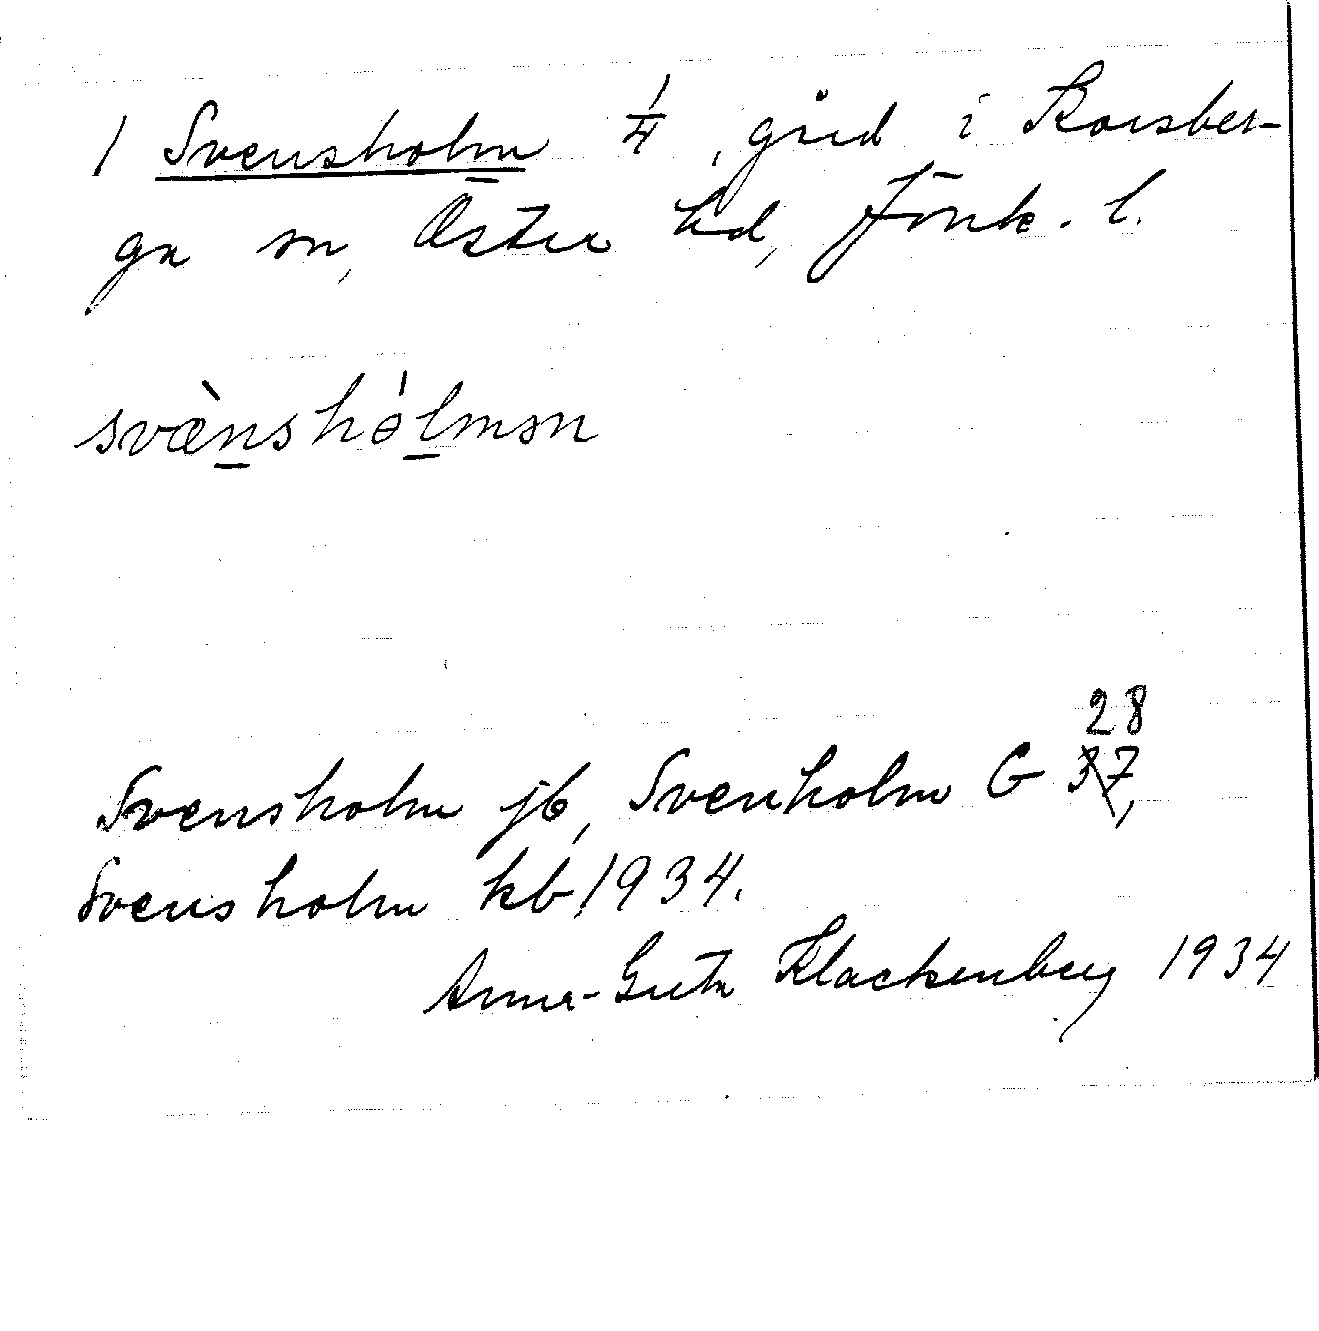 1 Svensholm 1/4, gård i Korsber-
ga sn, Östra hd, Jönk. l.
svæ̀nshólmən
28
Svensholm jb, Svenholm G 37,
Svensholm kb 1934.
Anna-Greta Klackenberg 1934